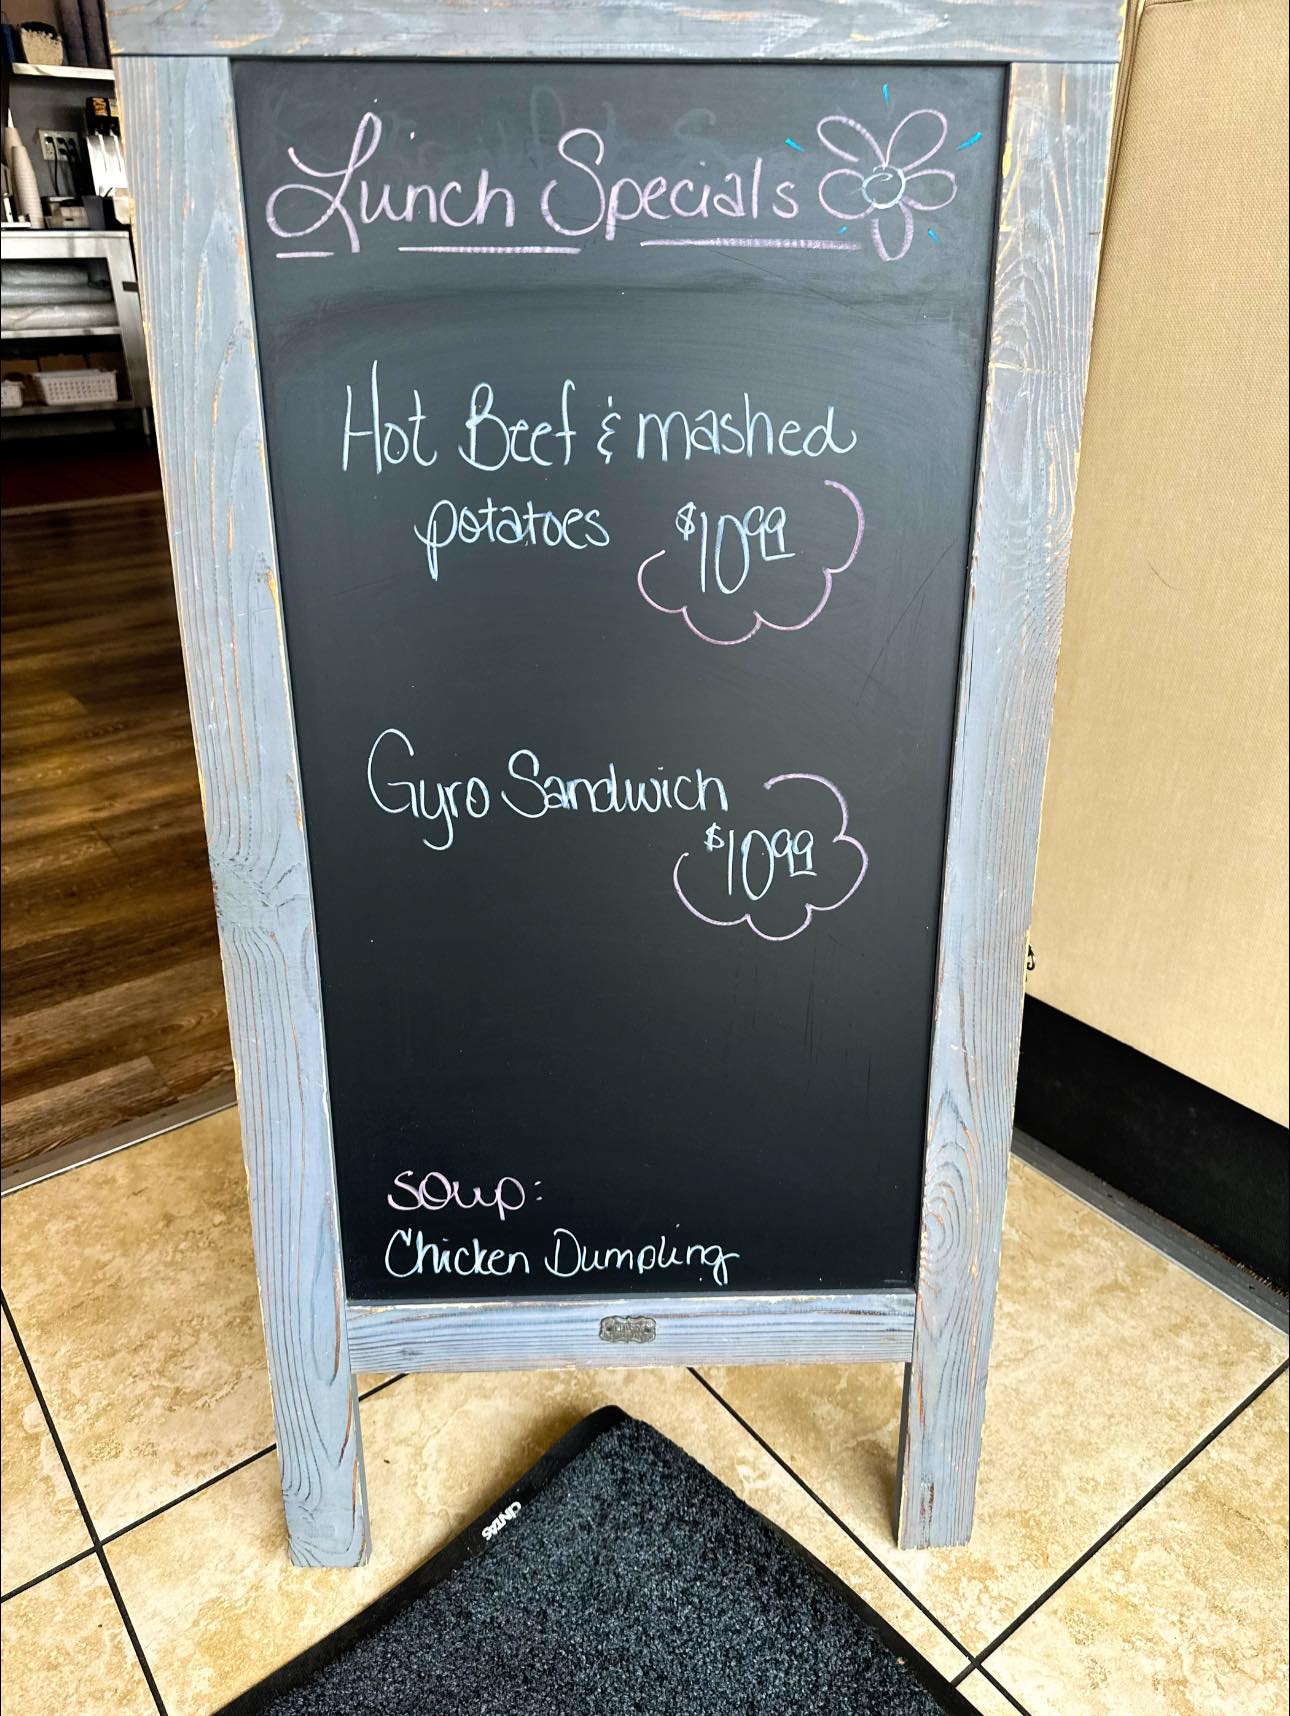 Lunch Specials
Hot Beef & mashed
potatoes $10.99
Gyro Sandwich
$10.99
Soup:
Chicken Dumpling
CINTAS